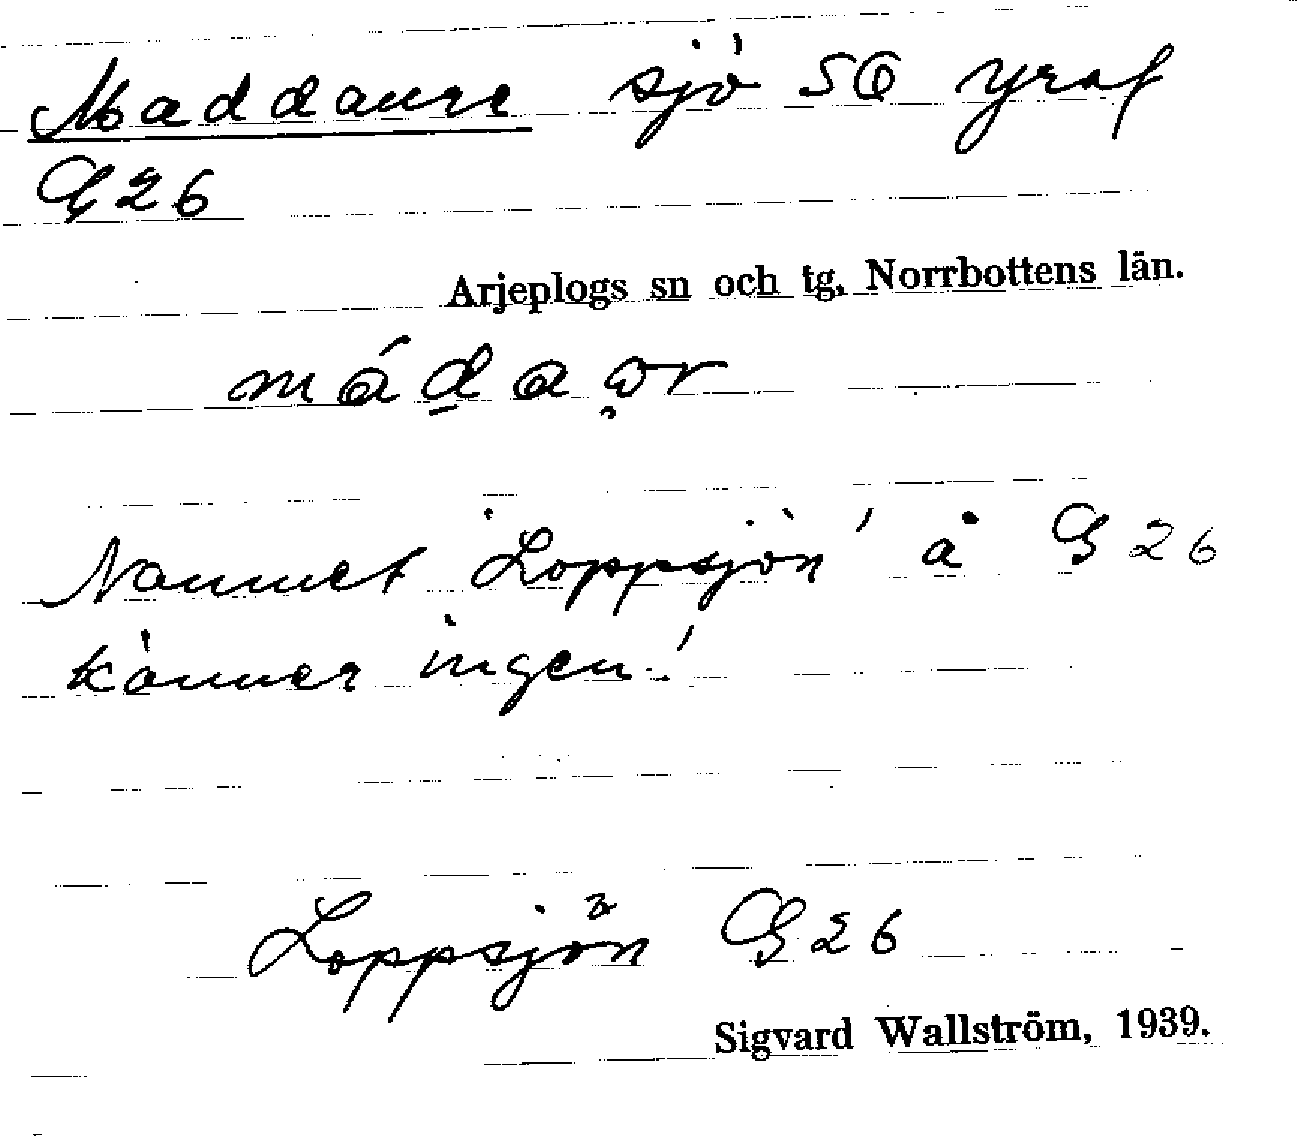 Maddaure sjö SO Yraf
G26
Arjeplogs sn och tg, Norrbottens län.
Namnet 'Loppsjön' å G 26
känner ingen!
Loppsjön G26
Sigvard Wallström, 1939.